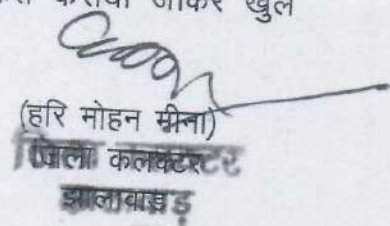 कराया जाकर खुले
(हरि मोहन मीना)
जिला कलक्टर
झालावाड़